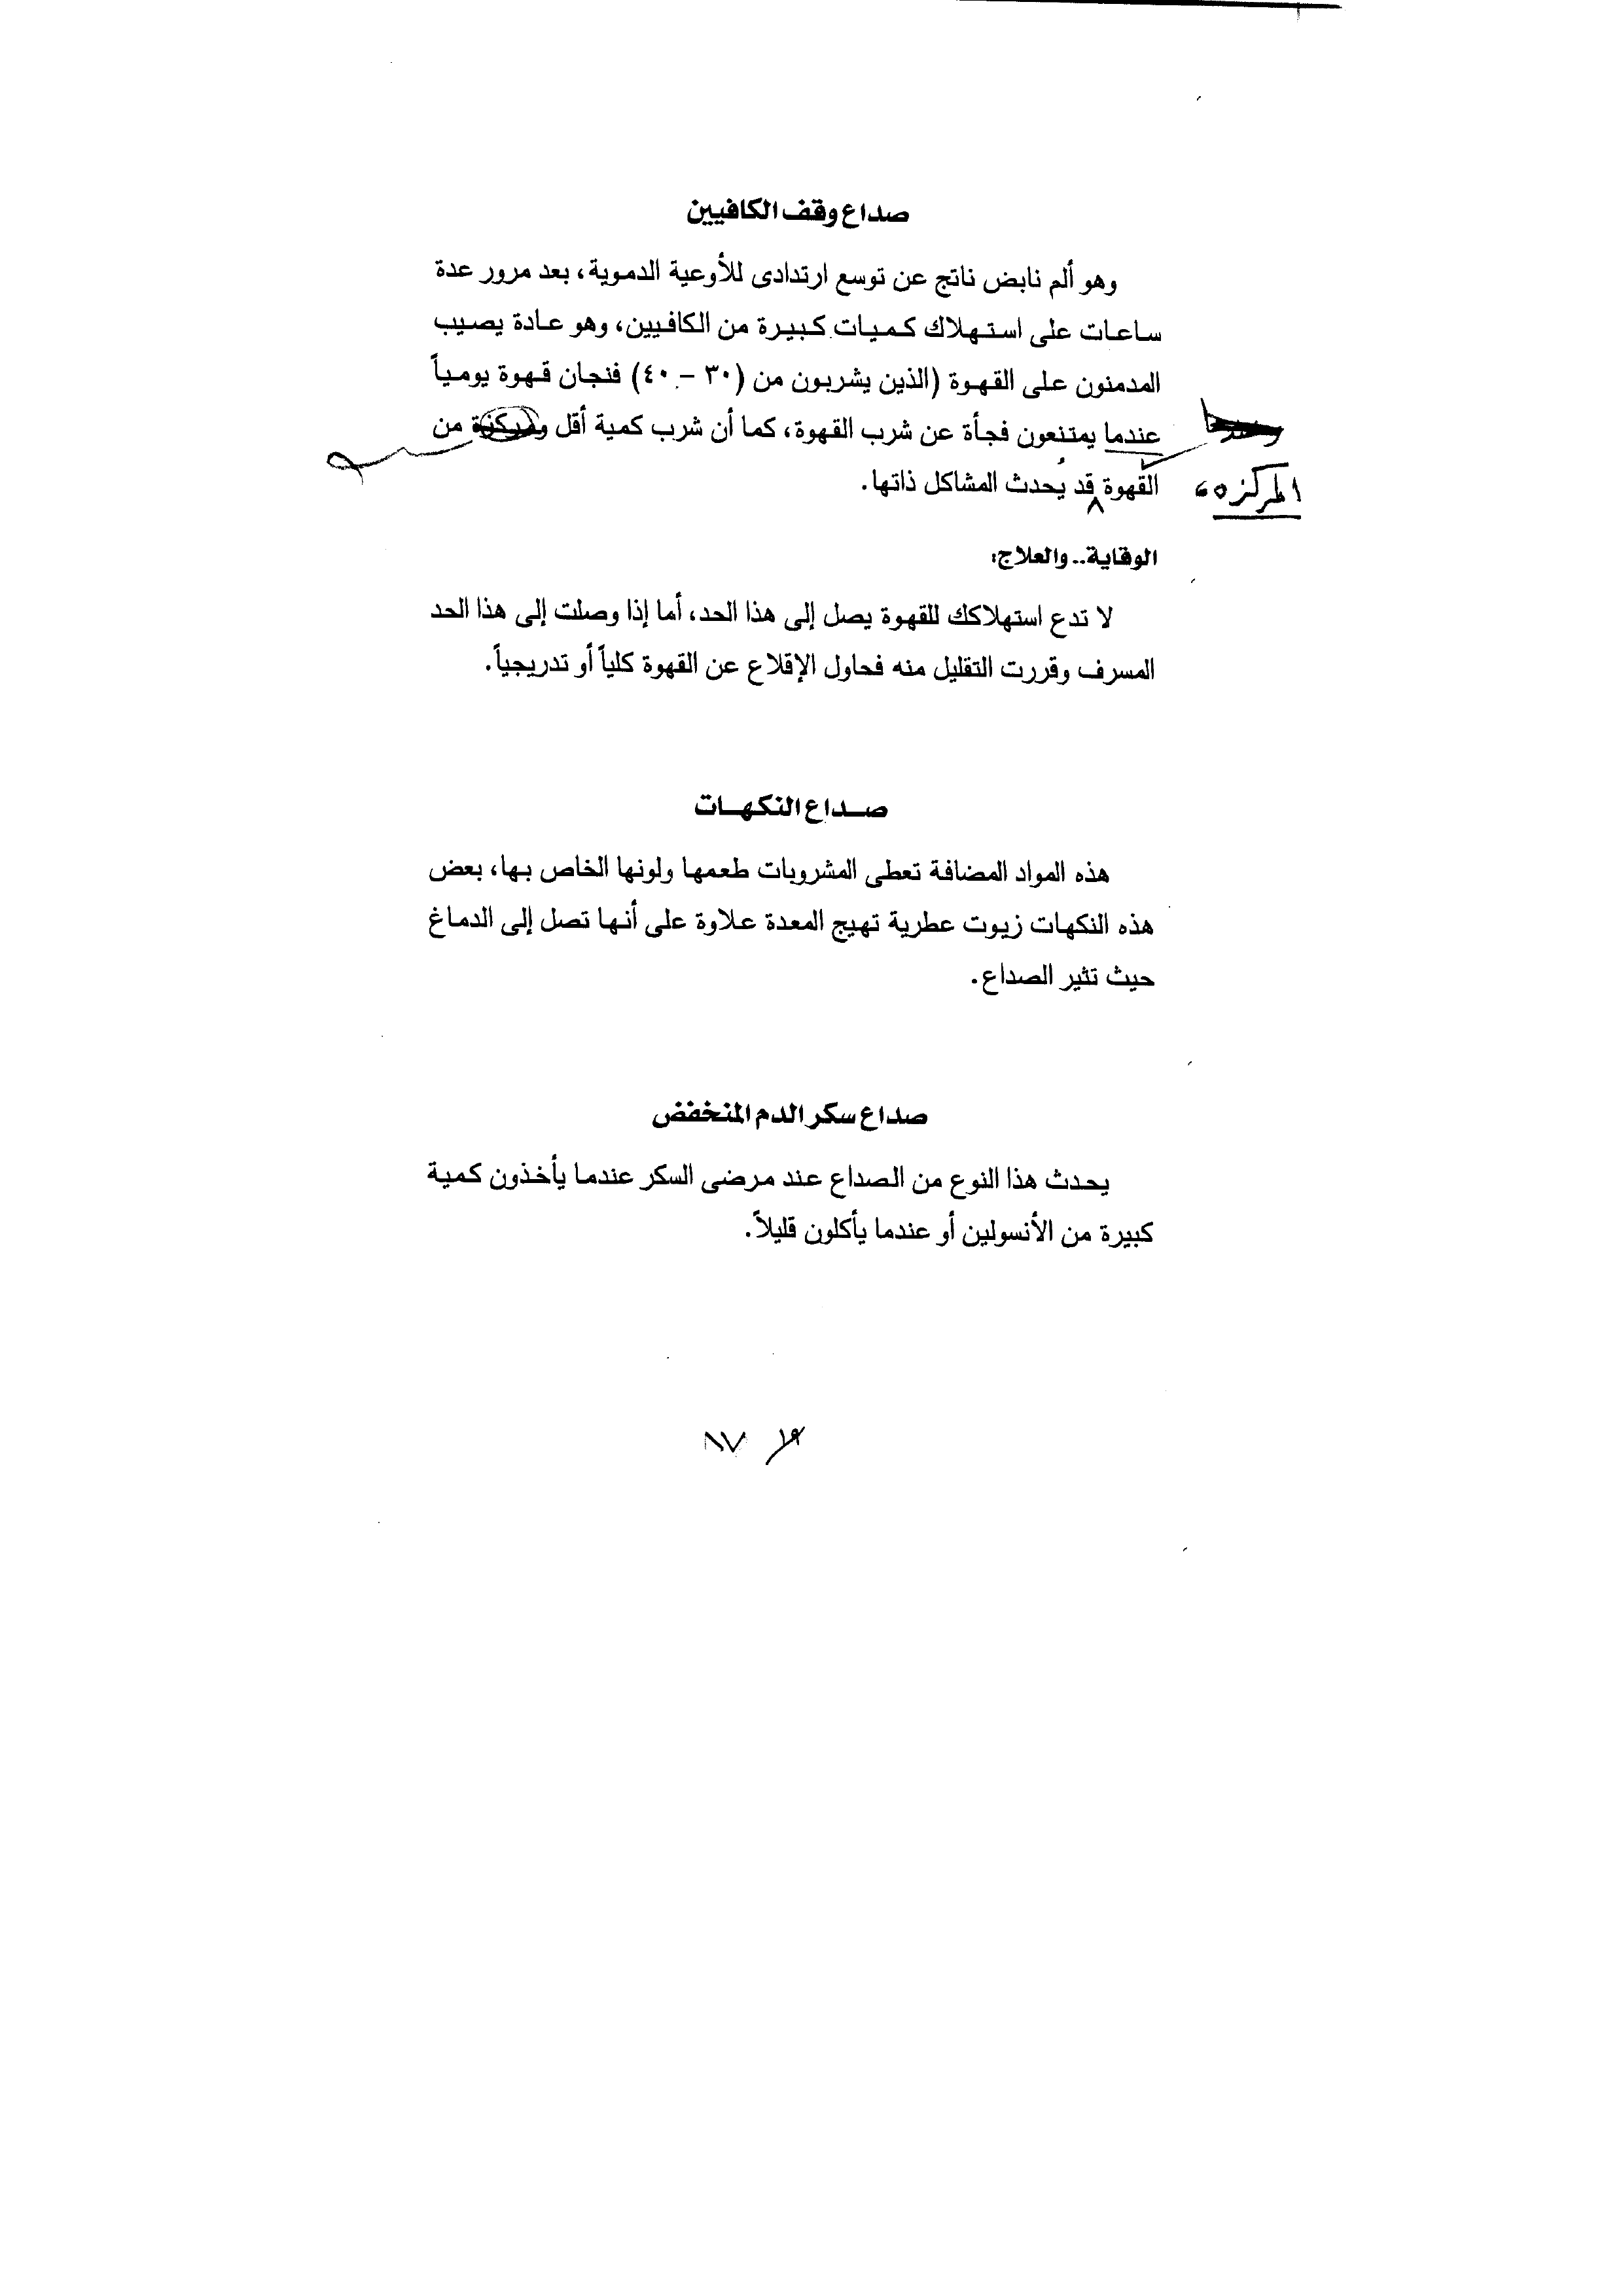 صداع وقف الكافيين
وهو ألم نابض ناتج عن توسع ارتدادى للأوعية الدموية، بعد مرور عدة
ساعات على استهلاك كميات كبيرة من الكافيين، وهو عادة يصيب
المدمنون على القهوة (الذين يشربون من (٣٠ - ٤٠) فنجان قهوة يومياً
عندما يمتنعون فجأة عن شرب القهوة، كما أن شرب كمية أقل ومركزة من
القهوة قد يُحدث المشاكل ذاتها.
المركزه
الوقاية.. والعلاج:
لا تدع استهلاكك للقهوة يصل إلى هذا الحد، أما إذا وصلت إلى هذا الحد
المسرف وقررت التقليل منه فحاول الإقلاع عن القهوة كلياً أو تدريجياً.
صداع النكهات
هذه المواد المضافة تعطى المشروبات طعمها ولونها الخاص بها، بعض
هذه النكهات زيوت عطرية تهيج المعدة علاوة على أنها تصل إلى الدماغ
حيث تثير الصداع.
صداع سكر الدم المنخفض
يحدث هذا النوع من الصداع عند مرضى السكر عندما يأخذون كمية
كبيرة من الأنسولين أو عندما يأكلون قليلاً.
١٩